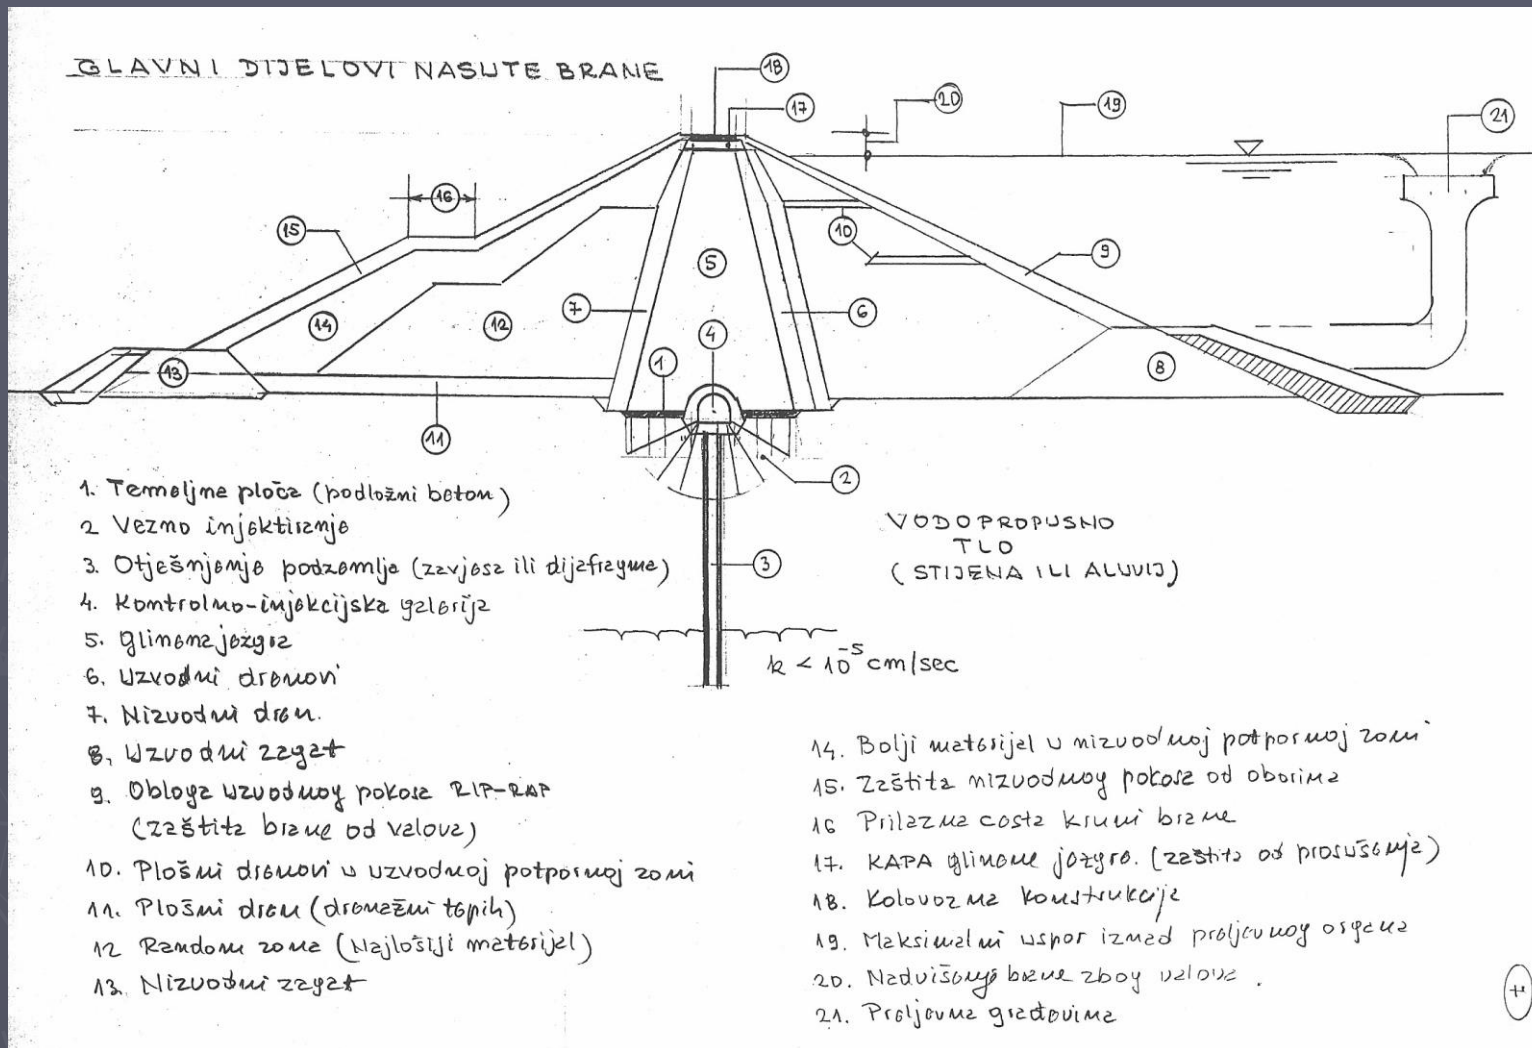 GLAVNI DIJELOVI NASUTE BRANE
18
17
20
19
21
16
15
10
9
5
7
6
14
12
4
1
13
8
11
2
3
VODOPROPUSNO
TLO
(STIJENA ILI ALUVIJ)
k < 10⁻⁵ cm/sec
1. Temeljna ploča (podložni beton)
2 Vezno injektiranje
3. Otješnjenje podzemlja (zavjesa ili dijafragma)
4. Kontrolno-injekcijska galerija
5. Glinena jezgra
6. Uzvodni drenovi
7. Nizvodni dren.
8. Uzvodni zagat
9. Obloga uzvodnog pokosa RIP-RAP
(zaštita brane od valova)
10. Plošni drenovi u uzvodnoj potpornoj zoni
11. Plošni dren (drenažni tepih)
12 Random zona (Najlošiji materijal)
13. Nizvodni zagat
14. Bolji materijal u nizvodnoj potpornoj zoni
15. Zaštita nizvodnog pokosa od oborina
16 Prilazna cesta kruni brane
17. KAPA glinene jezgre. (zaštita od prosušenja)
18. Kolovozna konstrukcija
19. Maksimalni uspor iznad preljevnog organa
20. Nadvišenje brane zbog valova.
21. Preljevna građevina